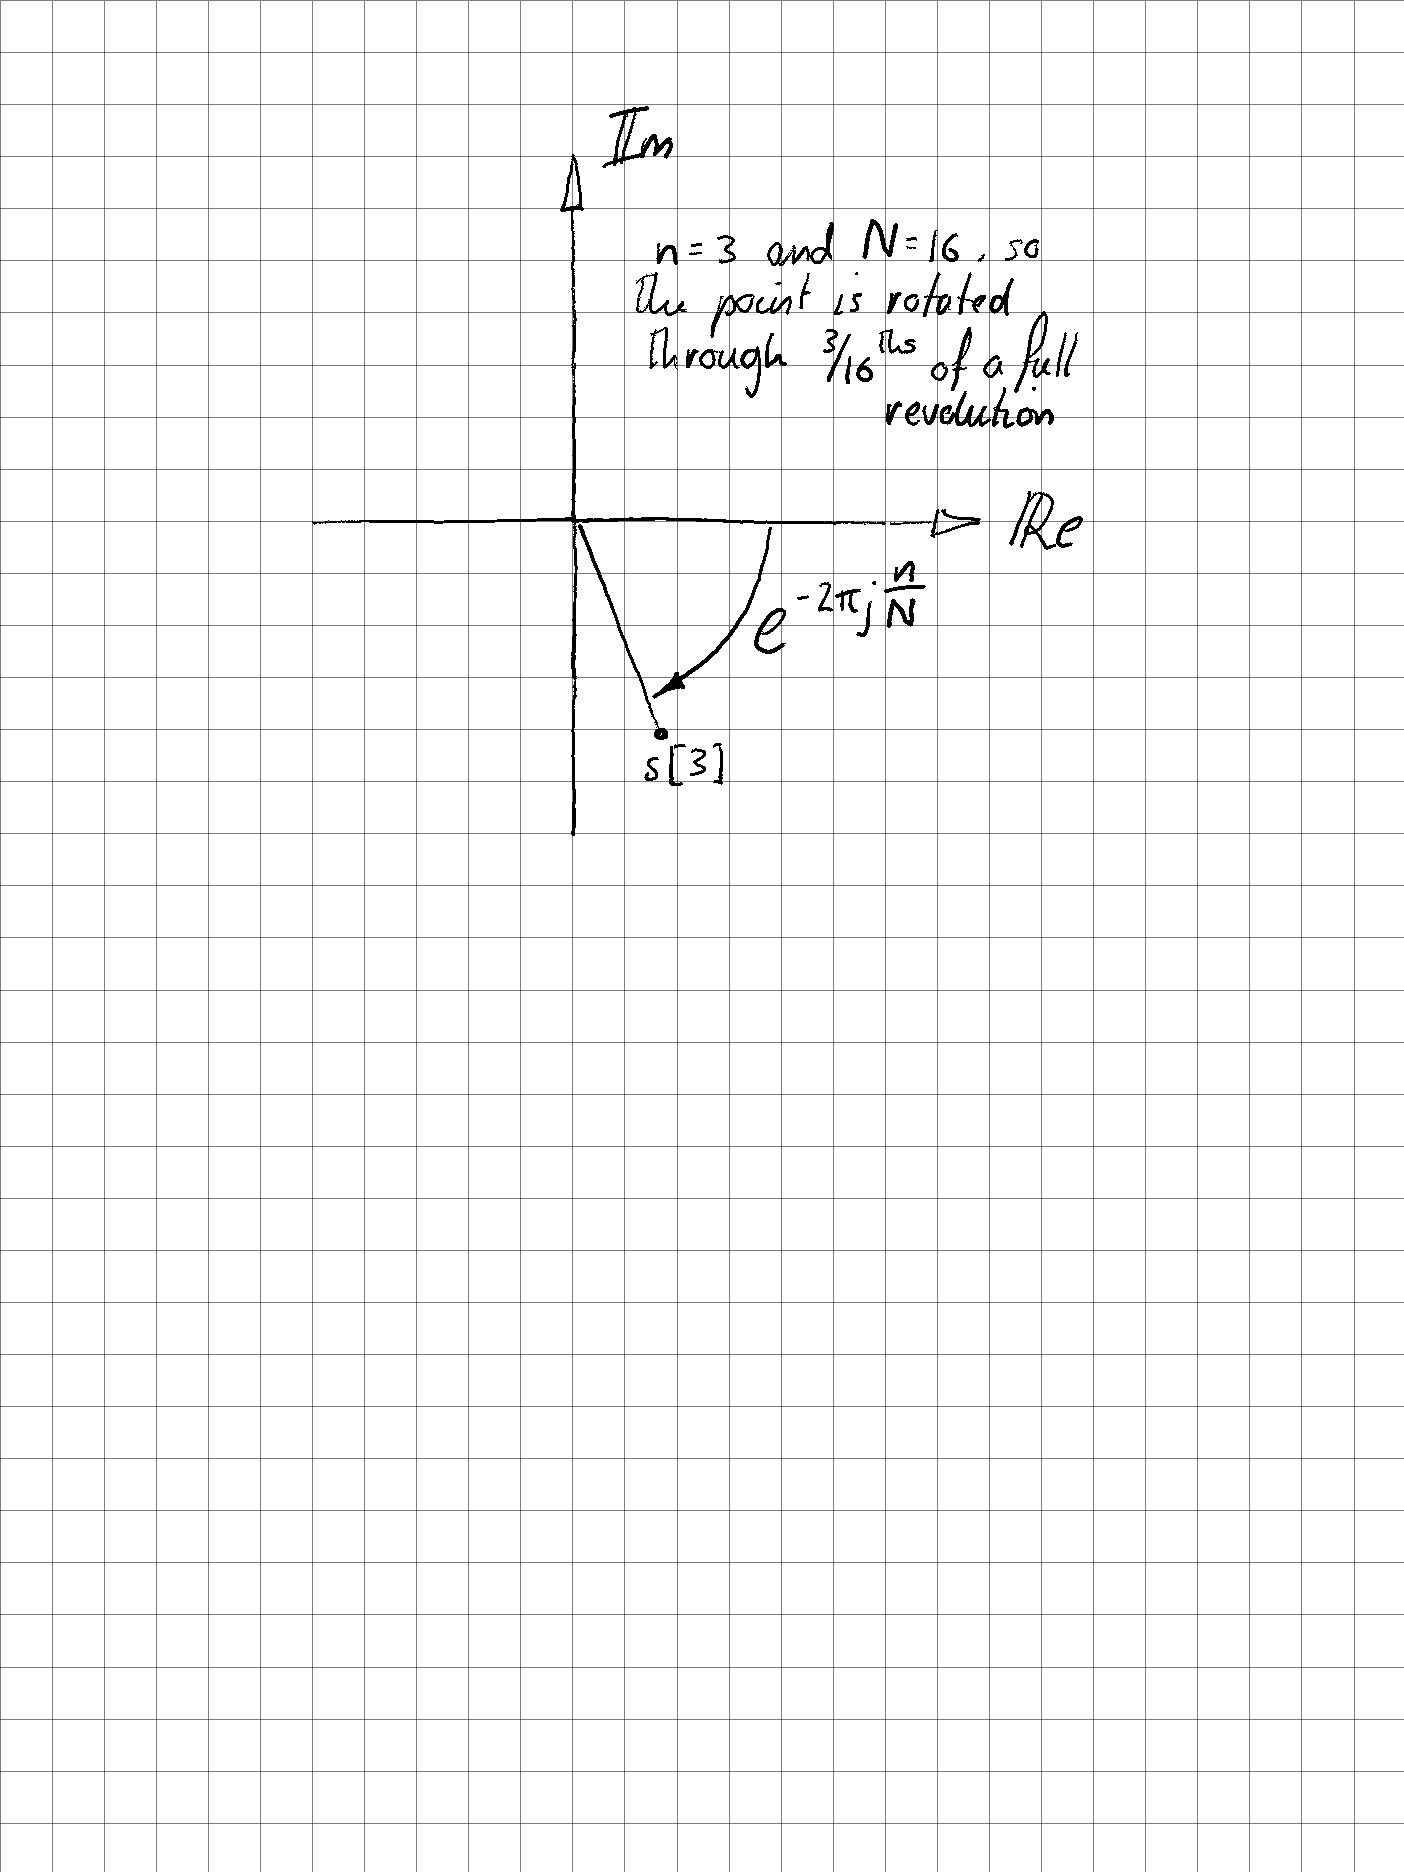 Im
n=3 and N=16, so
the point is rotated
through 3/16 ths of a full
revolution
Re
e^{-2πj n/N}
s[3]